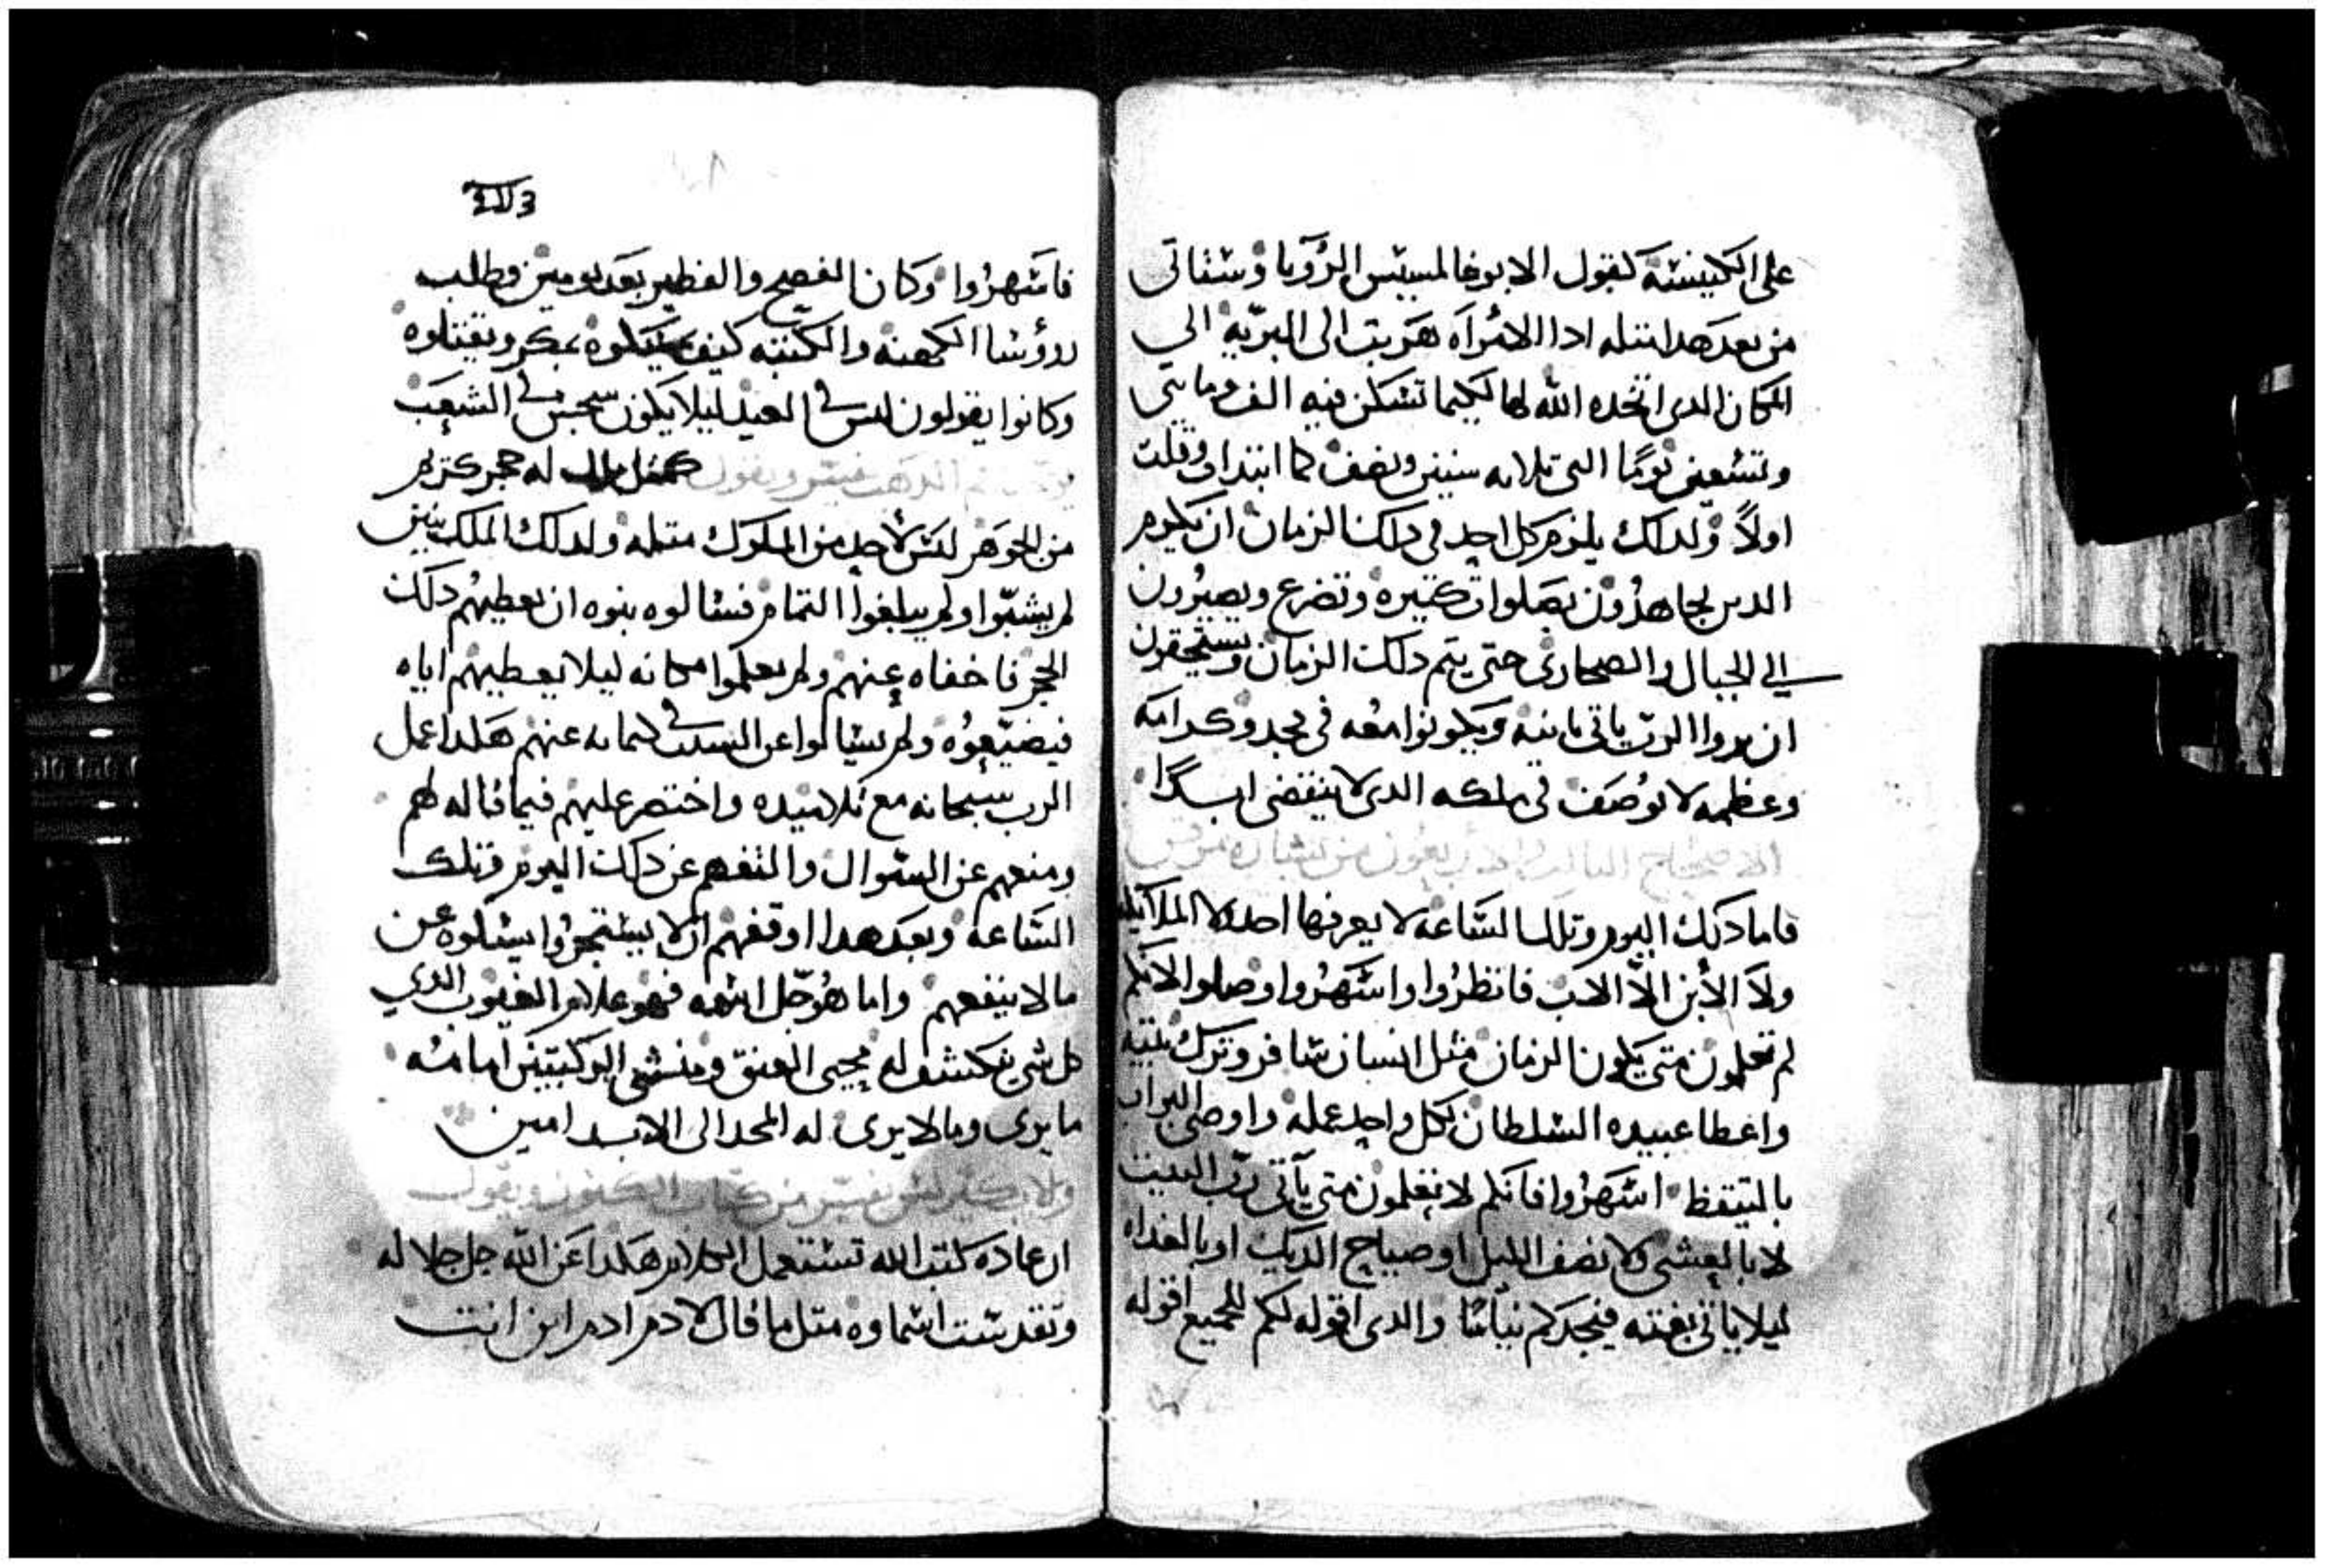 على الكنيسة كقول الابوغالمسيس الرؤيا وستاتى
من بعد هدا تتله ادا الامراه هربت الى البريه الي
المكان الدى اتخده الله لها لكيما تسكن فيه الف ومايتي
وتسعين يوما التى تلاته سنين ونصف كما ابتدات وقلت
اولاً ولدلك يلزم كل احد فى دلك الزمان ان يكون
الدين يجاهدون بصلوات كتيره وتضرع ويصيرون
الي الجبال والصحارى حتى يتم دلك الزمان ويستحقون
ان يروا الرب ياتى تانيه ويكونوا معه فى مجد وكرامه
وعظمه لا توصف فى ملكه الدى لا ينقضى ابداً
الاصحاح التالت والاربعون من بشارة مرقس
فاما دلك اليوم وتلك الساعه لا يعرفها احد ولا الملايكه
ولا الابن الا الاب فانظروا واسهروا وصلوا لانكم
لم تعلمون متى يكون الزمان مثل انسان سافر وترك بيته
واعطا عبيده السلطان لكل واحد عمله واوصى البواب
بالتيقظ اسهروا فانكم لا تعلمون متى يآتى رب البيت
لا بالعشى ولا نصف الليل او صياح الديك او بالغداه
ليلا ياتى بغته فيجدكم نياما والدى اقوله لكم للجميع اقوله
فاسهروا وكان الفصح والفطير بعد يومين وطلب
رؤسا الكهنه والكتبه كيف يمسكوه بمكر ويقتلوه
وكانوا يقولون ليس في العيد ليلا يكون سجس في الشعب
فم الدهب يفسر ويقول كمثل ملك له حجر كريم
من الجوهر ليس لاحد من الملوك مثله ولدلك الملك بنين
لم يشبّوا ولم يبلغوا التمام فسالوه بنوه ان يعطيهم دلك
الحجر فاخفاه عنهم ولم يعلموا مكانه ليلا يعطيهم اياه
فيضيّعوه ولم يسالوا عن السبب في كتمانه عنهم هكدا عمل
الرب سبحانه مع تلاميده واختصر عليهم فيما قاله لهم
ومنعهم عن السوال والتفهم عن دلك اليوم وتلك
الساعه وبعد هدا اوقفهم ان لا يستجروا يسلوه عن
ما لا ينفعهم واما هو جل اسمه فهو علام الغيوب الدي
كل شي ينكشف له محيى العنق ومنشى الركبتين امامه
ما يرى وما لا يرى له المجد الى الابد امين
وللا بكيرلس يفسر من كتاب الكنوز ويقول
ان عادة كتب الله تستعمل الكلام هكدا عن الله جل جلاله
وتقدست اسماوه متل ما قال لادم ادم اين انت